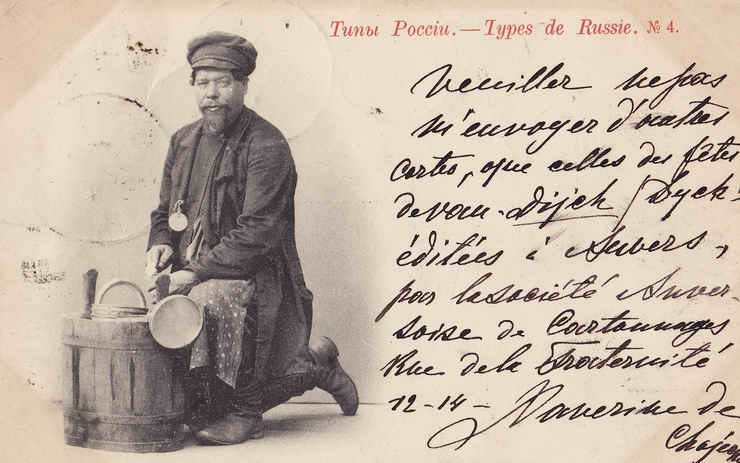 Типы Россіи. — Types de Russie. № 4.
Veuiller ne pas
m'envoyer d'autres
cartes, que celles des fêtes
de van-Dijck / Dyck
éditées à Anvers,
par la société Anver-
soise de Cartonnages
Rue de la Fraternité
12-14 -
de